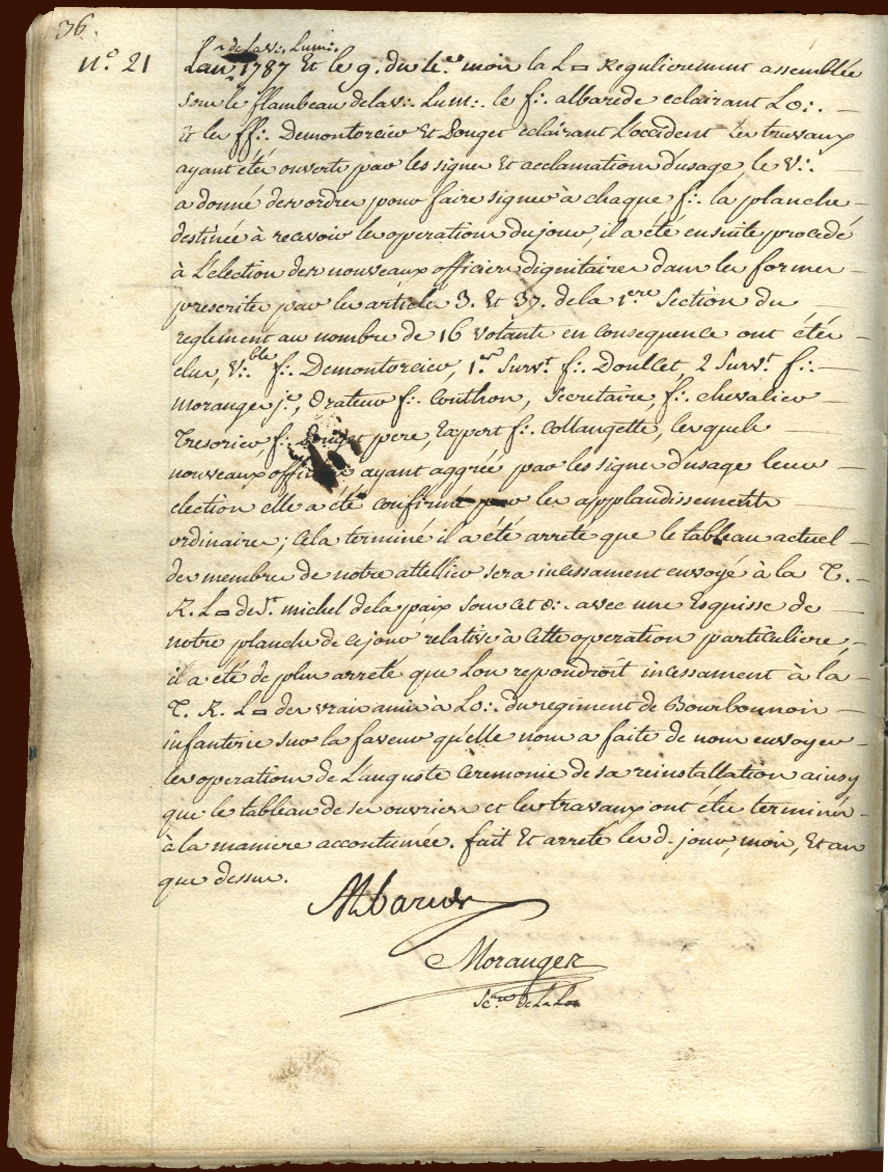 36
n.o 21
de la v∴ Lum∴
Lan 1787 Et le 9. du 4.e mois la L▭ Regulierement assemblée
sous le flambeau de la v∴ Lum∴ le f∴ albarede eclairant Lo∴
Et les ff∴ Demontorcier Et Pouget eclairant L'occident Les travaux
ayant étés ouverts par les signes Et acclamations d'usage, le V∴
a donné des ordres pour faire signer à chaque f∴ la planche
destinée à recevoir les operations du jour, il a été ensuite procedé
à L'election des nouveaux officiers dignitaires dans les formes
prescrites par les articles 3. Et 37. de la 1ere Section du
reglement au nombre de 16 votants en consequence ont étés
elus, V∴ble f∴ Demontorcier, 1.er Surv.t f∴ Doulcet, 2 Surv.t f∴
Moranges j.e, Orateur f∴ Couthon, Secretaire, f∴ chevalier
Tresorier, f∴ Pouget pere, Expert f∴ Collangette, lesquels
nouveaux officiers ayant aggréé par les signes d'usage leur
election elle a été confirmé par les applaudissements
ordinaires; Cela terminé il a été arreté que le tableau actuel
des membres de notre attellier sera incessament envoyé à la T.
R. L▭ de St. michel de la paix sous cet o∴ avec une Esquisse de
notre planche de ce jour relative à cette operation particuliere,
il a été de plus arreté que Lon repondroit incessament à la
T. R. L▭ des vrais amis à Lo∴ du regiment de Bourbonnois
infanterie sur la faveur qu'elle nous a faite de nous envoyer
les operations de L'auguste Ceremonie de sa reinstallation ainsy
que le tableau de ses ouvriers et les travaux ont étés terminés
à la maniere accoutumée. fait Et arreté les d. jour, mois, Et an
que dessus.
Albarede
Moranges
Sc.re de La L▭